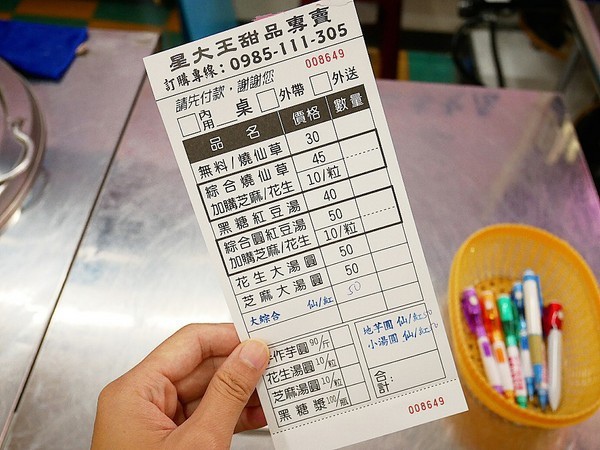 星大王甜品專賣
訂購專線：0985-111-305
008649
請先付款，謝謝您
內用 桌 外帶 外送
品名 價格 數量
無料/燒仙草 30
綜合燒仙草 45
加購芝麻/花生 10/粒
黑糖紅豆湯 40
綜合圓紅豆湯 50
加購芝麻/花生 10/粒
花生大湯圓 50
芝麻大湯圓 50
大綜合 仙/紅 50
地芋圓 仙/紅
小湯圓 仙/紅
作芋圓 90/斤
花生湯圓 10/粒
芝麻湯圓 10/粒
黑糖漿 100/瓶
合計：
008649